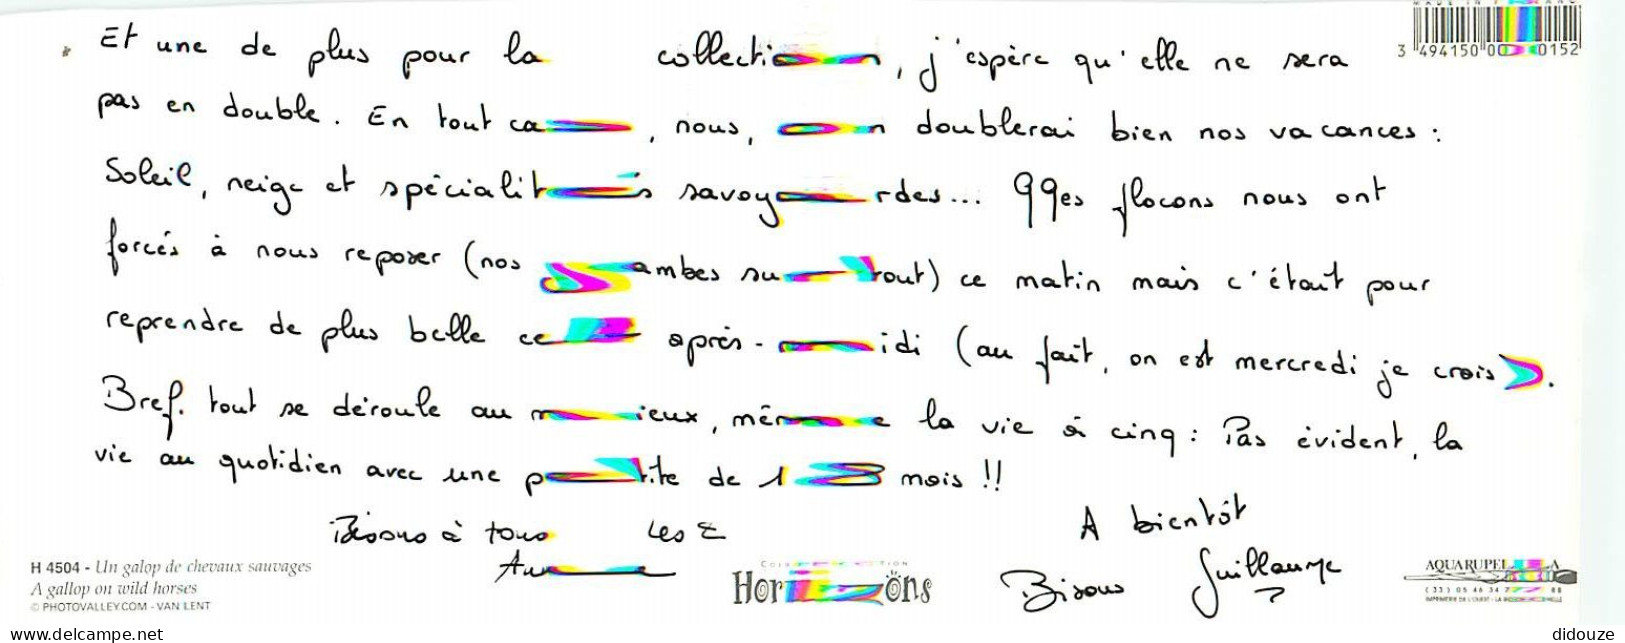 MADE IN FRANCE
Et une de plus pour la collection, j'espère qu'elle ne sera
3 494150 00 0152
pas en double. En tout cas, nous, on doublerai bien nos vacances :
Soleil, neige et spécialités savoyardes... 99es flocons nous ont
forcés à nous reposer (nos jambes surtout) ce matin mais c'était pour
reprendre de plus belle cet après-midi (au fait, on est mercredi je crois).
Bref. tout se déroule au mieux, même la vie à cinq : Pas évident, la
vie au quotidien avec une petite de 18 mois !!
Bisous à tous les 2
A bientôt
Bisous Guillaume
H 4504 - Un galop de chevaux sauvages
A gallop on wild horses
© PHOTOVALLEY.COM - VAN LENT
Horizöns
AQUARUPELLA
www.delcampe.net
didouze